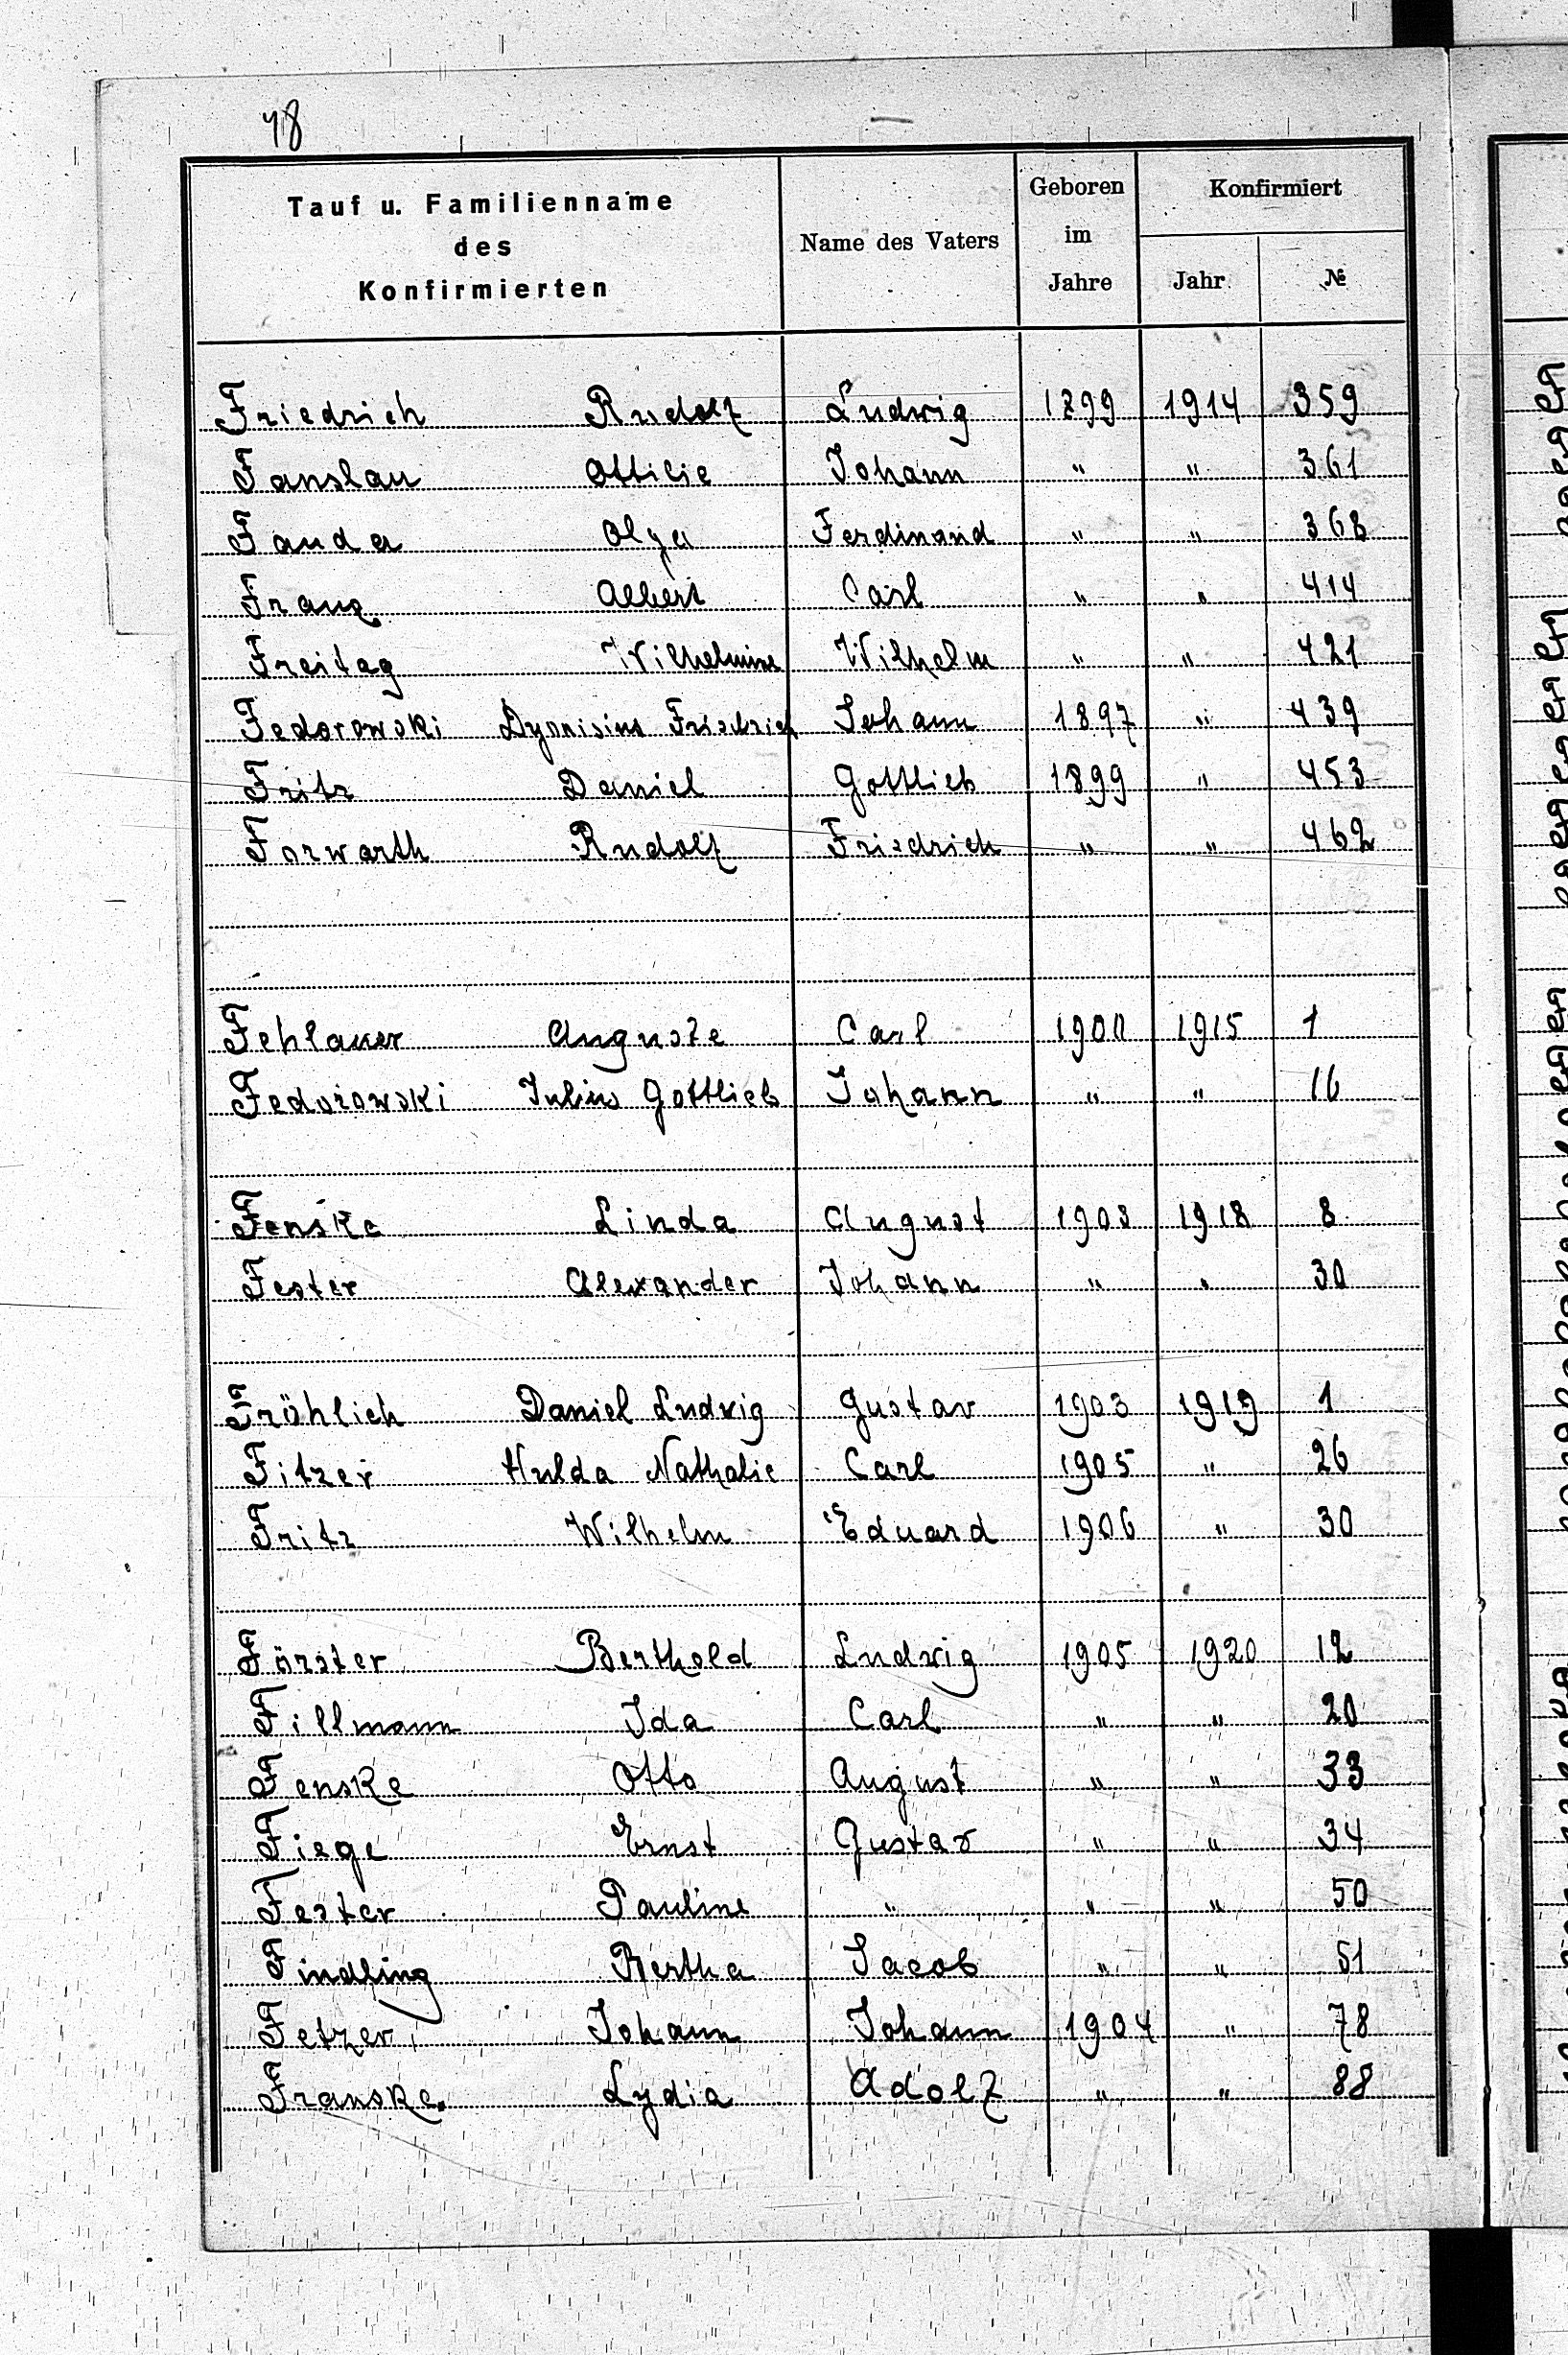 48
Tauf u. Familienname des Konfirmierten | Name des Vaters | Geboren im Jahre | Konfirmiert Jahr | №
Friedrich Rudolf Ludwig 1899 1914 359
Fanslau Ottilie Johann " " 361
Fauda Olga Ferdinand " " 368
Franz Albert Carl " " 414
Freitag Wilhelmine Wilhelm " " 421
Fedorowski Dyonisius Friedrich Johann 1897 " 439
Fritz Daniel Gottlieb 1899 " 453
Forwarth Rudolf Friedrich " " 462
Fehlauer Auguste Carl 1900 1915 1
Fedorowski Julius Gottlieb Johann " " 16
Fenske Linda August 1903 1918 8
Fester Alexander Johann " " 30
Fröhlich Daniel Ludwig Gustav 1903 1919 1
Fitzer Hulda Nathalie Carl 1905 " 26
Fritz Wilhelm Eduard 1906 " 30
Förster Berthold Ludwig 1905 1920 12
Fillmann Ida Carl " " 20
Fenske Otto August " " 33
Fiege Ernst Gustav " " 34
Fester Pauline " " " 50
Findling Bertha Jacob " " 51
Fetzer Johann Johann 1904 " 78
Franske. Lydia Adolf " " 88